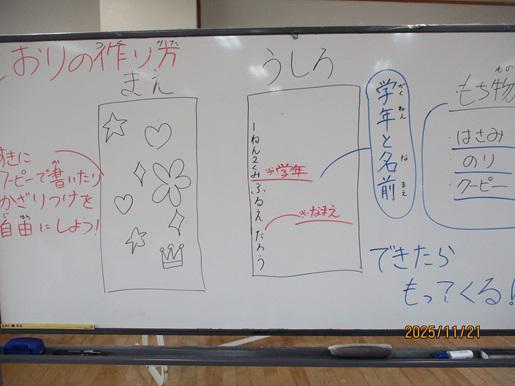 しおりの作り方
つく かた
まえ
すきに
クーピーで書いたり
か
かざりつけを
じゆう
自由にしよう!
うしろ
1ねん2くみ ふるえ たろう
※学年
※なまえ
がく ねん な まえ
学年と名前
もの
もち物
はさみ
のり
クーピー
できたら
もってくる!
2025/11/21